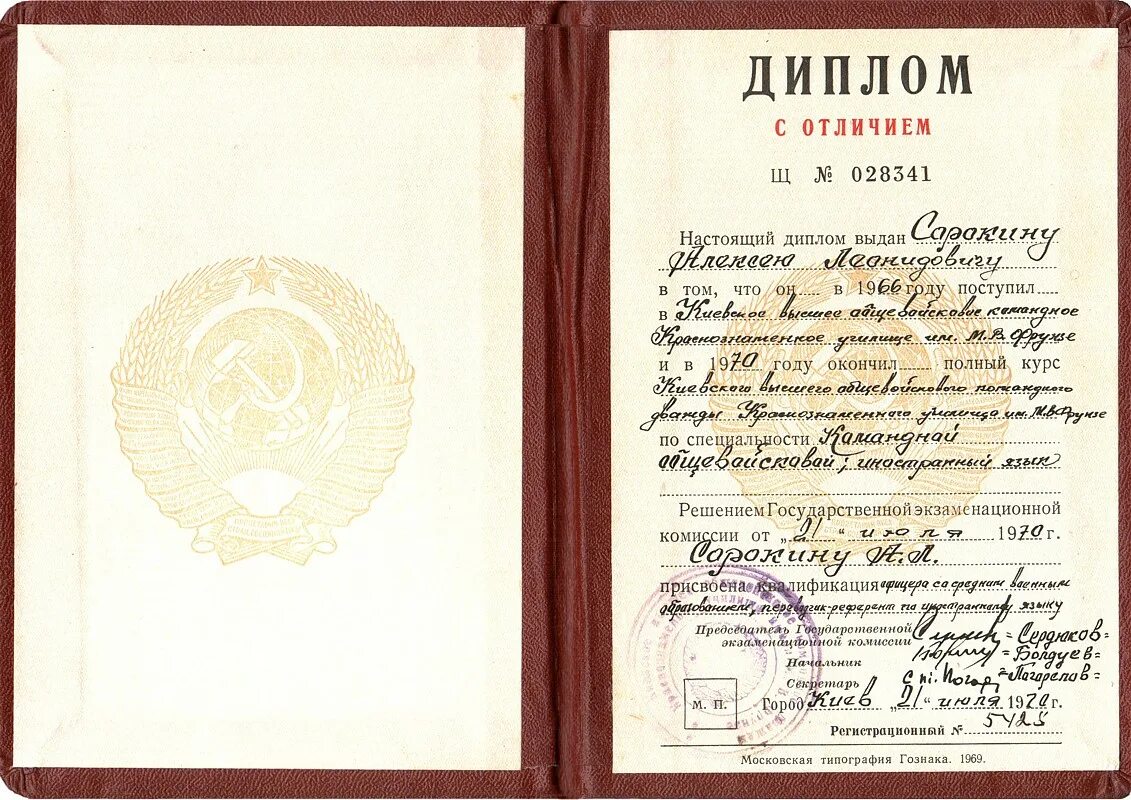 ДИПЛОМ
С ОТЛИЧИЕМ
Щ № 028341
Настоящий диплом выдан Сорокину
Алексею Леонидовичу
в том, что он в 1966 году поступил
в Киевское высшее общевойсковое командное
Краснознаменное училище им. М.В. Фрунзе
и в 1970 году окончил полный курс
Киевского высшего общевойскового командного
дважды Краснознаменного училища им. М.В. Фрунзе
по специальности Командной
общевойсковой; иностранный язык
Решением Государственной экзаменационной
комиссии от „21“ июля 1970 г.
Сорокину А.Л.
присвоена квалификация офицера со средним военным
образованием, переводчик-референт по иностранному языку
Председатель Государственной
экзаменационной комиссии =Сердюков=
=Болдуев=
Начальник
Секретарь =Погорелов=
М. П. Город Киев „21“ июля 1970 г.
Регистрационный №
Московская типография Гознака. 1969.